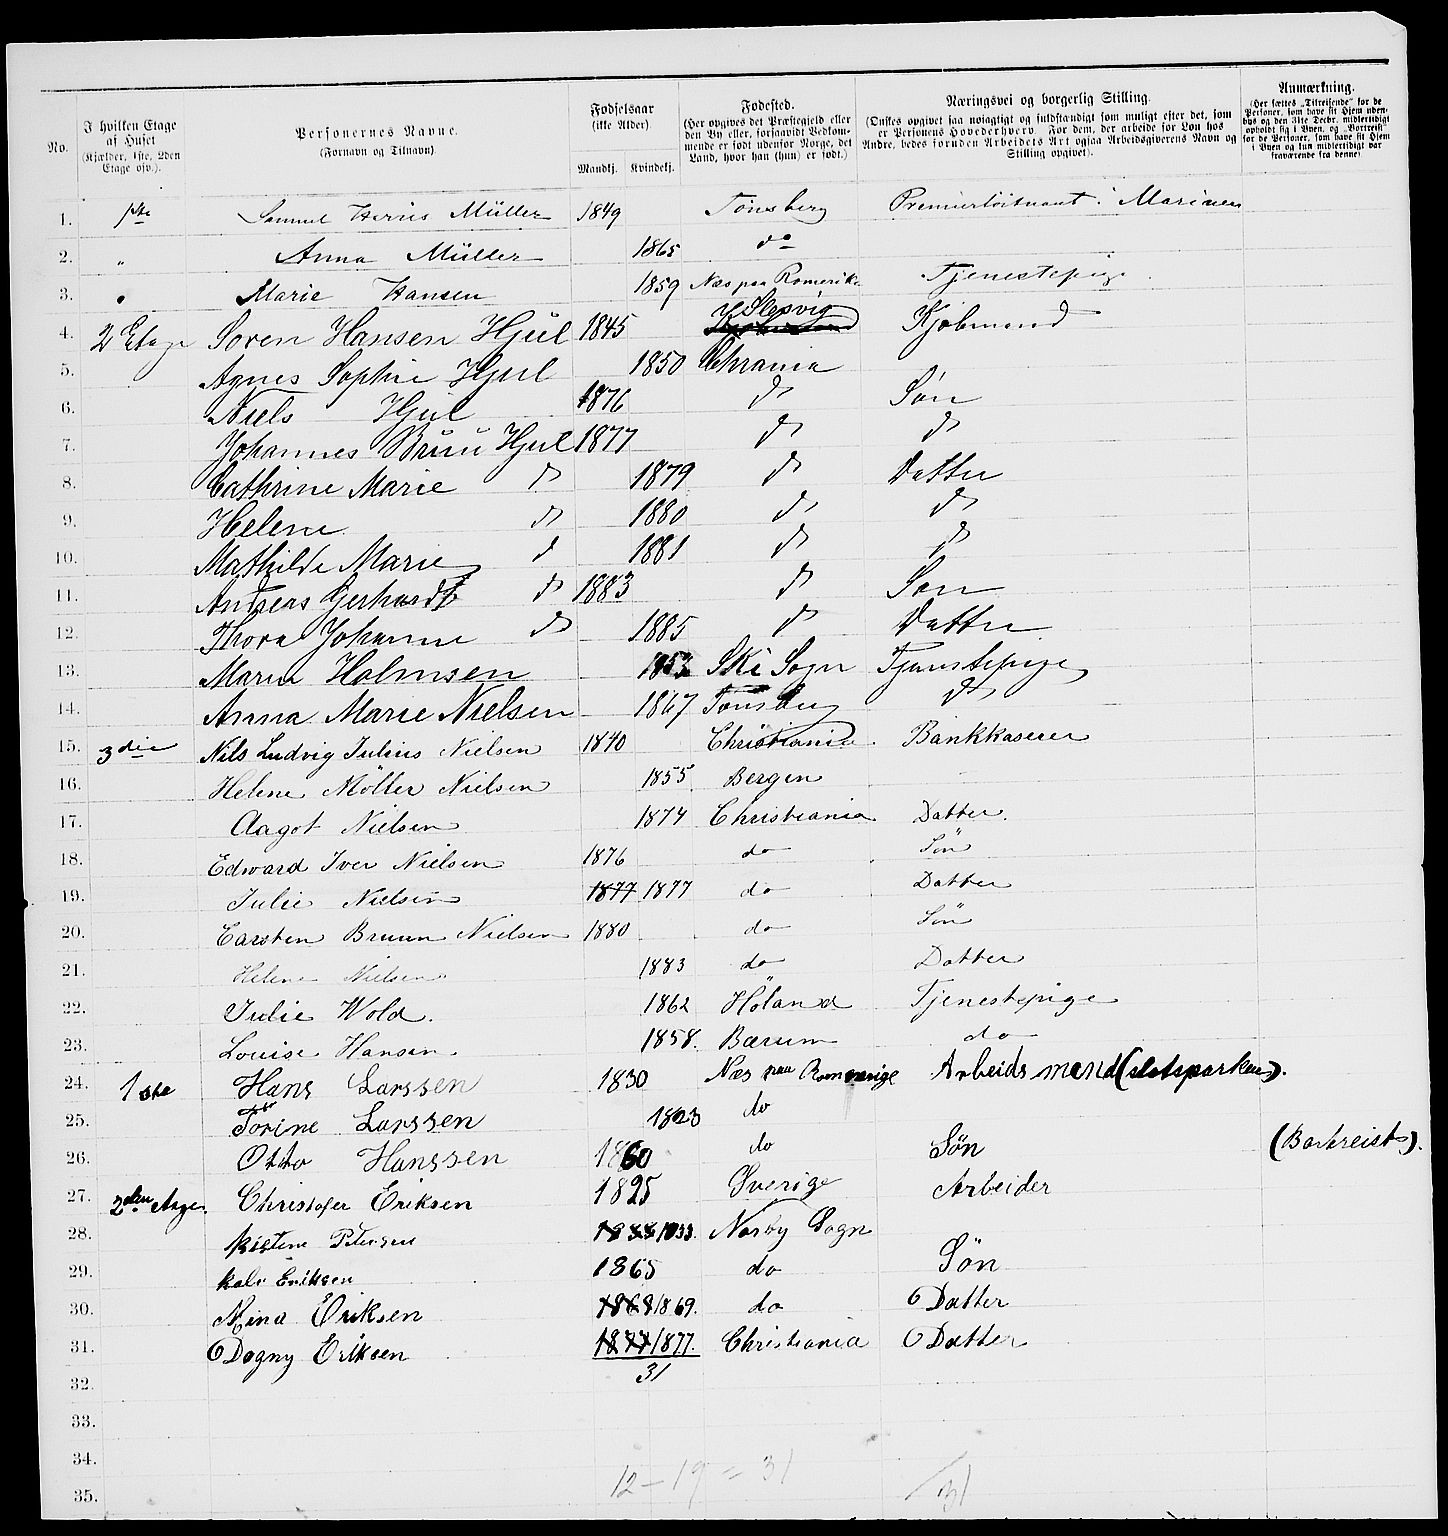 No. | I hvilken Etage af Huset (Kjælder, 1ste, 2den Etage osv.). | Personernes Navne. (Fornavn og Tilnavn). | Fødselsaar (ikke Alder). Mandkj. Kvindekj. | Fødested. (Her opgives det Præstegjeld eller den By eller, forsaavidt Vedkommende er født udenfor Norge, det Land, hvor han (hun) er født.) | Næringsvei og borgerlig Stilling. (Ønskes opgivet saa nøiagtigt og fuldstændigt som muligt efter det, som er Personens Hovederhverv. For dem, der arbeide for Løn hos Andre, bedes foruden Arbeidets Art ogsaa Arbeidsgiverens Navn og Stilling opgivet). | Anmærkning. (Her sættes „Tilreisende“ for de Personer, som have sit Hjem udenbys og den 31te Decbr. midlertidigt opholdt sig i Byen, og „Bortreist“ for de Personer, som have sit Hjem i Byen og kun midlertidigt var fraværende fra denne).
1. 1ste Samuel Müller 1849 Tønsberg Premierløitnant i Marinen
2. " Anna Müller 1865 do
3. " Marie Hansen 1859 Næs paa Romerike Tjenestepige
4. 2 Etage Søren Hansen Hjul 1845 Slesvig Kjøbmand
5. Agnes Sophie Hjul 1850 Chrania
6. Niels Hjul 1876 do Søn
7. Johannes Bruu Hjul 1877 do do
8. Cathrine Marie do 1879 do Datter
9. Helene do 1880 do do
10. Mathilde Marie do 1881 do do
11. Andreas Gerhardt do 1883 do Søn
12. Thora Johanne do 1885 do Datter
13. Maren Holmsen 1853 Ski Sogn Tjenstepige
14. Anna Marie Nielsen 1867 Tønsberg do
15. 3die Nils Ludvig Julius Nielsen 1840 Christiania Bankkaserer
16. Helene Möller Nielsen 1855 Bergen
17. Aagot Nielsen 1874 Christiania Datter.
18. Edward Iver Nielsen 1876 do Søn
19. Julie Nielsen 1877 1877 do Datter
20. Carsten Bruun Nielsen 1880 do Søn
21. Helene Nielsen 1883 do Datter
22. Julie Wold. 1862 Høland Tjenestepige
23. Louise Hansen. 1858. Bærum do
24. 1ste Hans Larssen 1830 Næs paa Romerige Arbeidsmand (slotsparken).
25. Torine Larssen 1823 do
26. Otto Hanssen 1860 do Søn (Bortreist).
27. 2den Etage. Christofer Eriksen 1825 Sverige Arbeider
28. Kistine Petersen 1833. Nørby Sogn
29. Kalv Eriksen 1865 do Søn
30. Mina Eriksen 1868 1869. do Datter
31. Dagny Eriksen 1877 1877. Christiania Datter
32. 31
33.
34.
35. 12 - 19 = 31 31